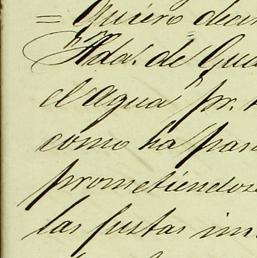 = Quiero decir
Hda. de Gua
el agua pr.
como ha pas
prometiendos
las justas im